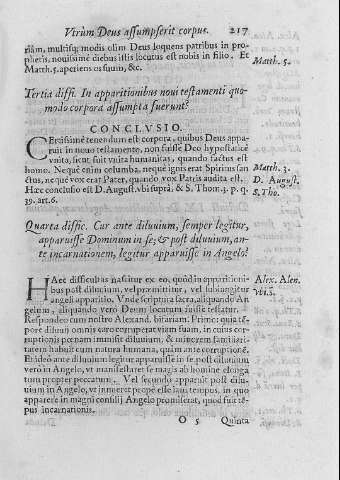 Vtrùm Deus assumpserit corpus. 217
riàm, multisq; modis olim Deus loquens patribus in pro-
phetis, nouissimè diebus istis locutus est nobis in filio. Et
Matth. 5. aperiens os suum, &c.
Matth. 5.
Tertia diffi. In apparitionibus noui testamenti quo-
modo corpora assumpta fuerunt?
CONCLVSIO.
CErtissimè tenendum est corpora, quibus Deus appa-
ruit in nouo testamento, non fuisse Deo hypostaticè
vnita, sicut fuit vnita humanitas, quando factus est
homo. Neque enim columba, neque ignis erat Spiritus san-
ctus, neque vox erat Pater, quando vox Patris audita est.
Hæc conclusio est D. August. vbi suprà, & S. Thom. 3. p. q.
39. art. 6.
Matth. 3.
D. August.
S. Tho.
Quarta diffic. Cur ante diluuium, semper legitur,
apparuisse Dominum in se; & post diluuium, an-
te incarnationem, legitur apparuisse in Angelo?
HAec difficultas nascitur ex eo, quòd in apparitioni-
bus post diluuium, vel præmittitur, vel subiungitur
angeli apparitio. Vnde scriptura sacra, aliquando An
gelum, aliquando verò Deum locutum fuisse testatur.
Respondeo cum nostro Alexand. bifariam: Primò: quia tē-
pore diluuij omnis caro corruperat viam suam, in cuius cor-
ruptionis pœnam immisit diluuium, & minorem familiari-
tatem habuit cum natura humana, quàm ante corruptionē.
Et ideò ante diluuium legitur apparuisse in se post diluuium
verò in Angelo, vt manifestaret se magis ab homine elonga
tum propter peccatum. Vel secundò apparuit post dilu-
uium in Angelo, vt innueret propè esse iam tempus, in quo
apparere in magni consilij Angelo promiserat, quod fuit tē-
pus incarnationis.
Alex. Alen.
O 5 Quinta